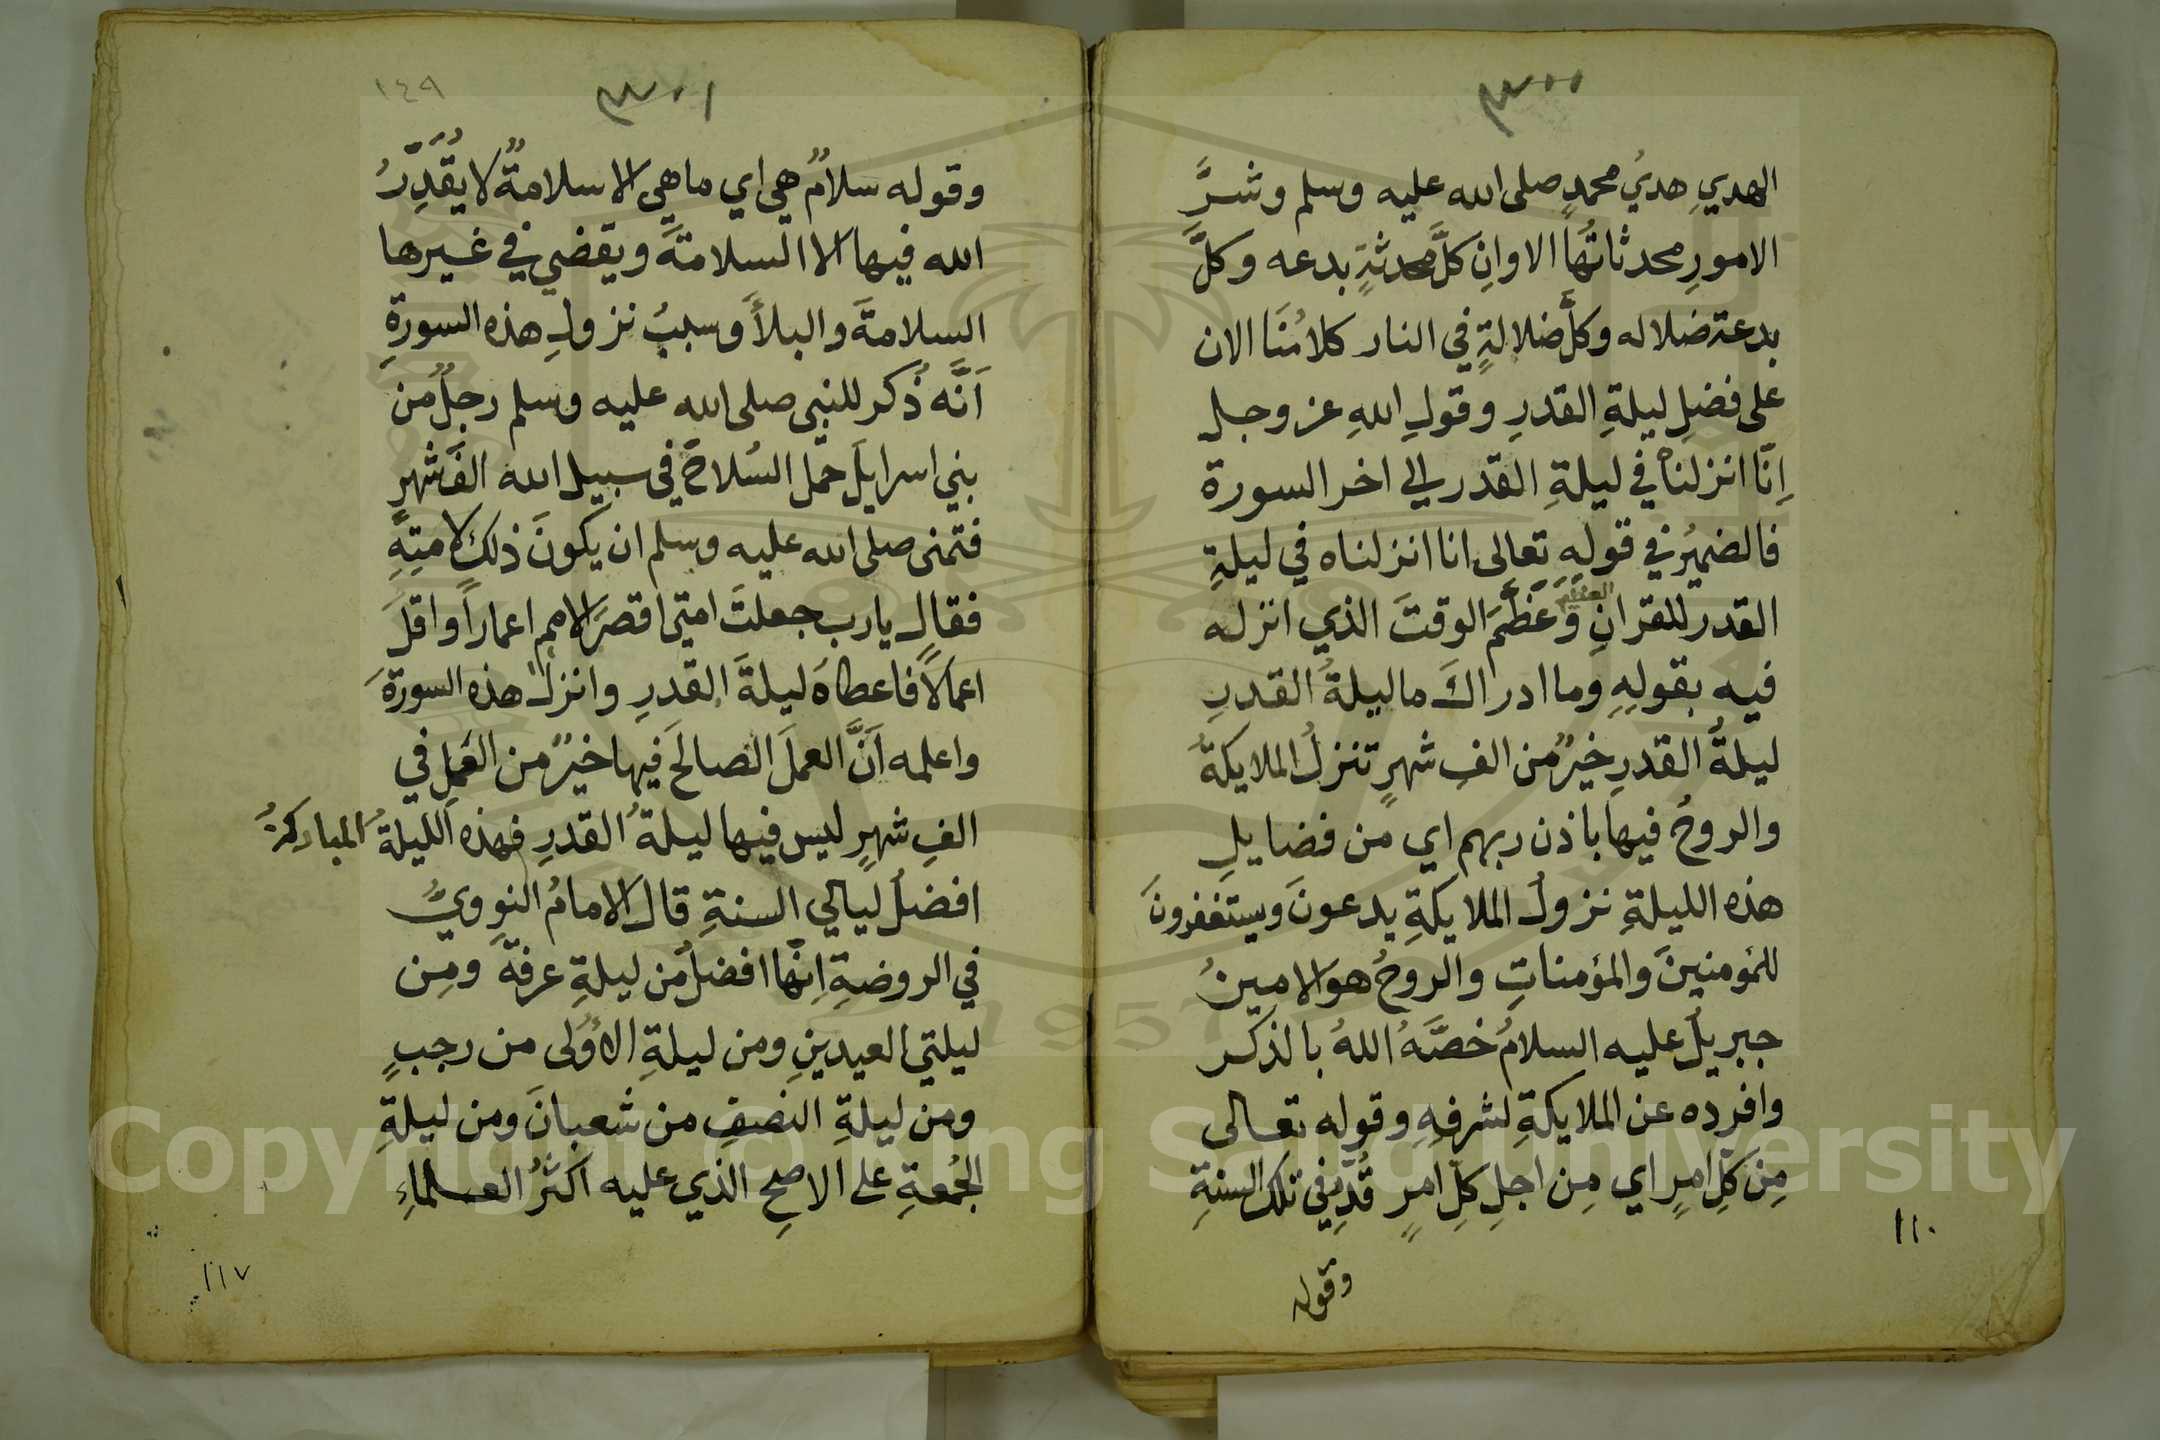 ٣٠٠
الهديِ هديُ محمدٍ صلى الله عليه وسلم وشرَّ
الامورِ محدثاتُها الا وانِ كلَّ محدثةٍ بدعه وكلَّ
بدعة ضلاله وكلَّ ضلالةٍ في النار كلامُنَا الان
على فضلِ ليلةِ القدرِ وقولِ اللهِ عز وجل
اِنَّا انزلناه في ليلةِ القدر الي اخر السورة
فالضميُر في قولهِ تعالى انا انزلناه في ليلةِ
القدر للقرانِ العظيم وعَظَّمَ الوقتَ الذي انزله
فيه بقولِهِ وما ادراكَ ما ليلةُ القدرِ
ليلةُ القدرِ خيرٌ من الفِ شهرٍ تنزلُ الملايكةُ
والروحُ فيها باذن ربهم اي من فضايلِ
هذه الليلةِ نزولُ الملايكةِ يدعونَ ويستغفرونَ
للمؤمنينَ والمؤمناتِ والروحُ هو الامينُ
جبريلُ عليه السلامُ خصَّهُ اللهُ بالذكر
وافرده عن الملايكةِ لشرفِهِ وقوله تعالى
مِن كلِ امرٍ اي مِن اجلِ كلِ امرٍ قُدِّرَ في تلك السنةِ
وقوله
١١٠
٣٠١
١٤٩
وقوله سلامٌ هي اي ما هي الا سلامةٌ لا يُقَدِّرُ
الله فيها الا السلامةَ ويقضي في غيرها
السلامةَ والبلأَ وسببُ نزولِ هذه السورةِ
اَنَّه ذُكر للنبي صلى الله عليه وسلم رجلٌ من
بني اسرايلَ حمل السُلاحَ في سبيل الله الفَ شهرٍ
فتمنى صلى الله عليه وسلم ان يكونَ ذلك لامتِهِ
فقال يا رب جعلتَ امتي اقصرَ الامم اعماراً واقلَ
اعمالاً فاعطاه ليلةَ القدرِ وانزلَ هذه السورةَ
واعلمه اَنَّ العملَ الصالحَ فيها خيرٌ من العَمِل في
الفِ شهرٍ ليس فيها ليلةُ القدرِ فهذه الليلةُ المباركةُ
افضلُ ليالي السنةِ قال الامامُ النوِويُّ
في الروضةِ اِنَّها افضلُ من ليلةِ عرفةَ ومِن
ليلتي العيدينِ ومن ليلةِ الأُولى من رجبٍ
ومن ليلةِ النصفِ من شعبانَ ومن ليلةِ
الجُمُعةِ على الاصحِ الذي عليه اكثرُ العلماءِ
١١٧
1957
Copyright © King Saud University